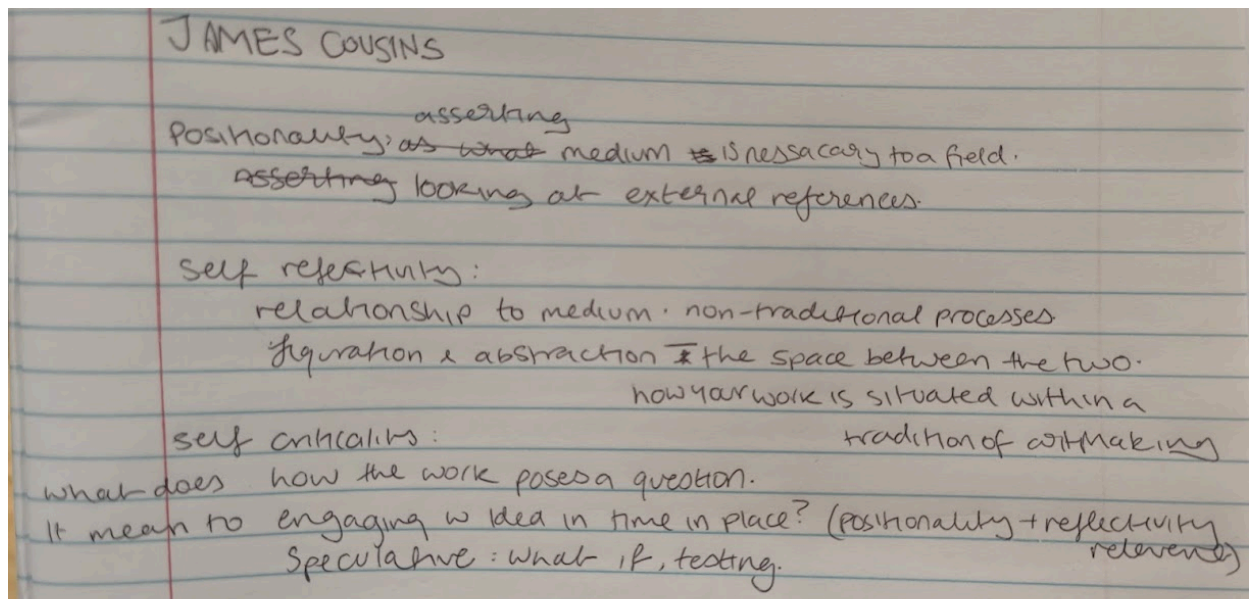 JAMES COUSINS
asserting
Positionality: as what medium is nessacary to a field.
asserting looking at external references.
self reflectivity:
relationship to medium. non-traditional processes
figuration & abstraction the space between the two.
how your work is situated within a
tradition of artmaking
self criticality:
what does how the work poses a question.
It mean to engaging w idea in time in place? (positionality + reflectivity
Speculative: what if, testing.